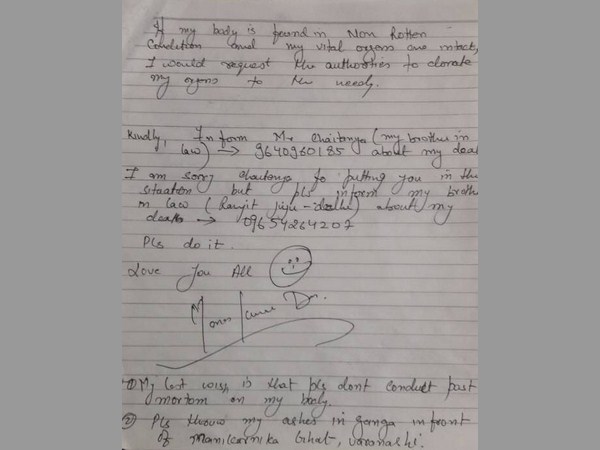 If my body is found in Non Rotten
Condition and my vital organs are intact,
I would request the authorities to donate
my organs to the needy.
Kindly, Inform Mr Chaitanya (my brother in
law) → 9640960185 about my deat
I am sorry Chaitanya to putting you in this
situation but pls inform my broth
in law (Ranjit jiju - delhi) about my
death → 09654264207
Pls do it.
Love You All
① My last wish is that pls dont conduct post
mortom on my body.
② Pls throw my ashes in Ganga infront
of Manikarnika Ghat, Varanashi.